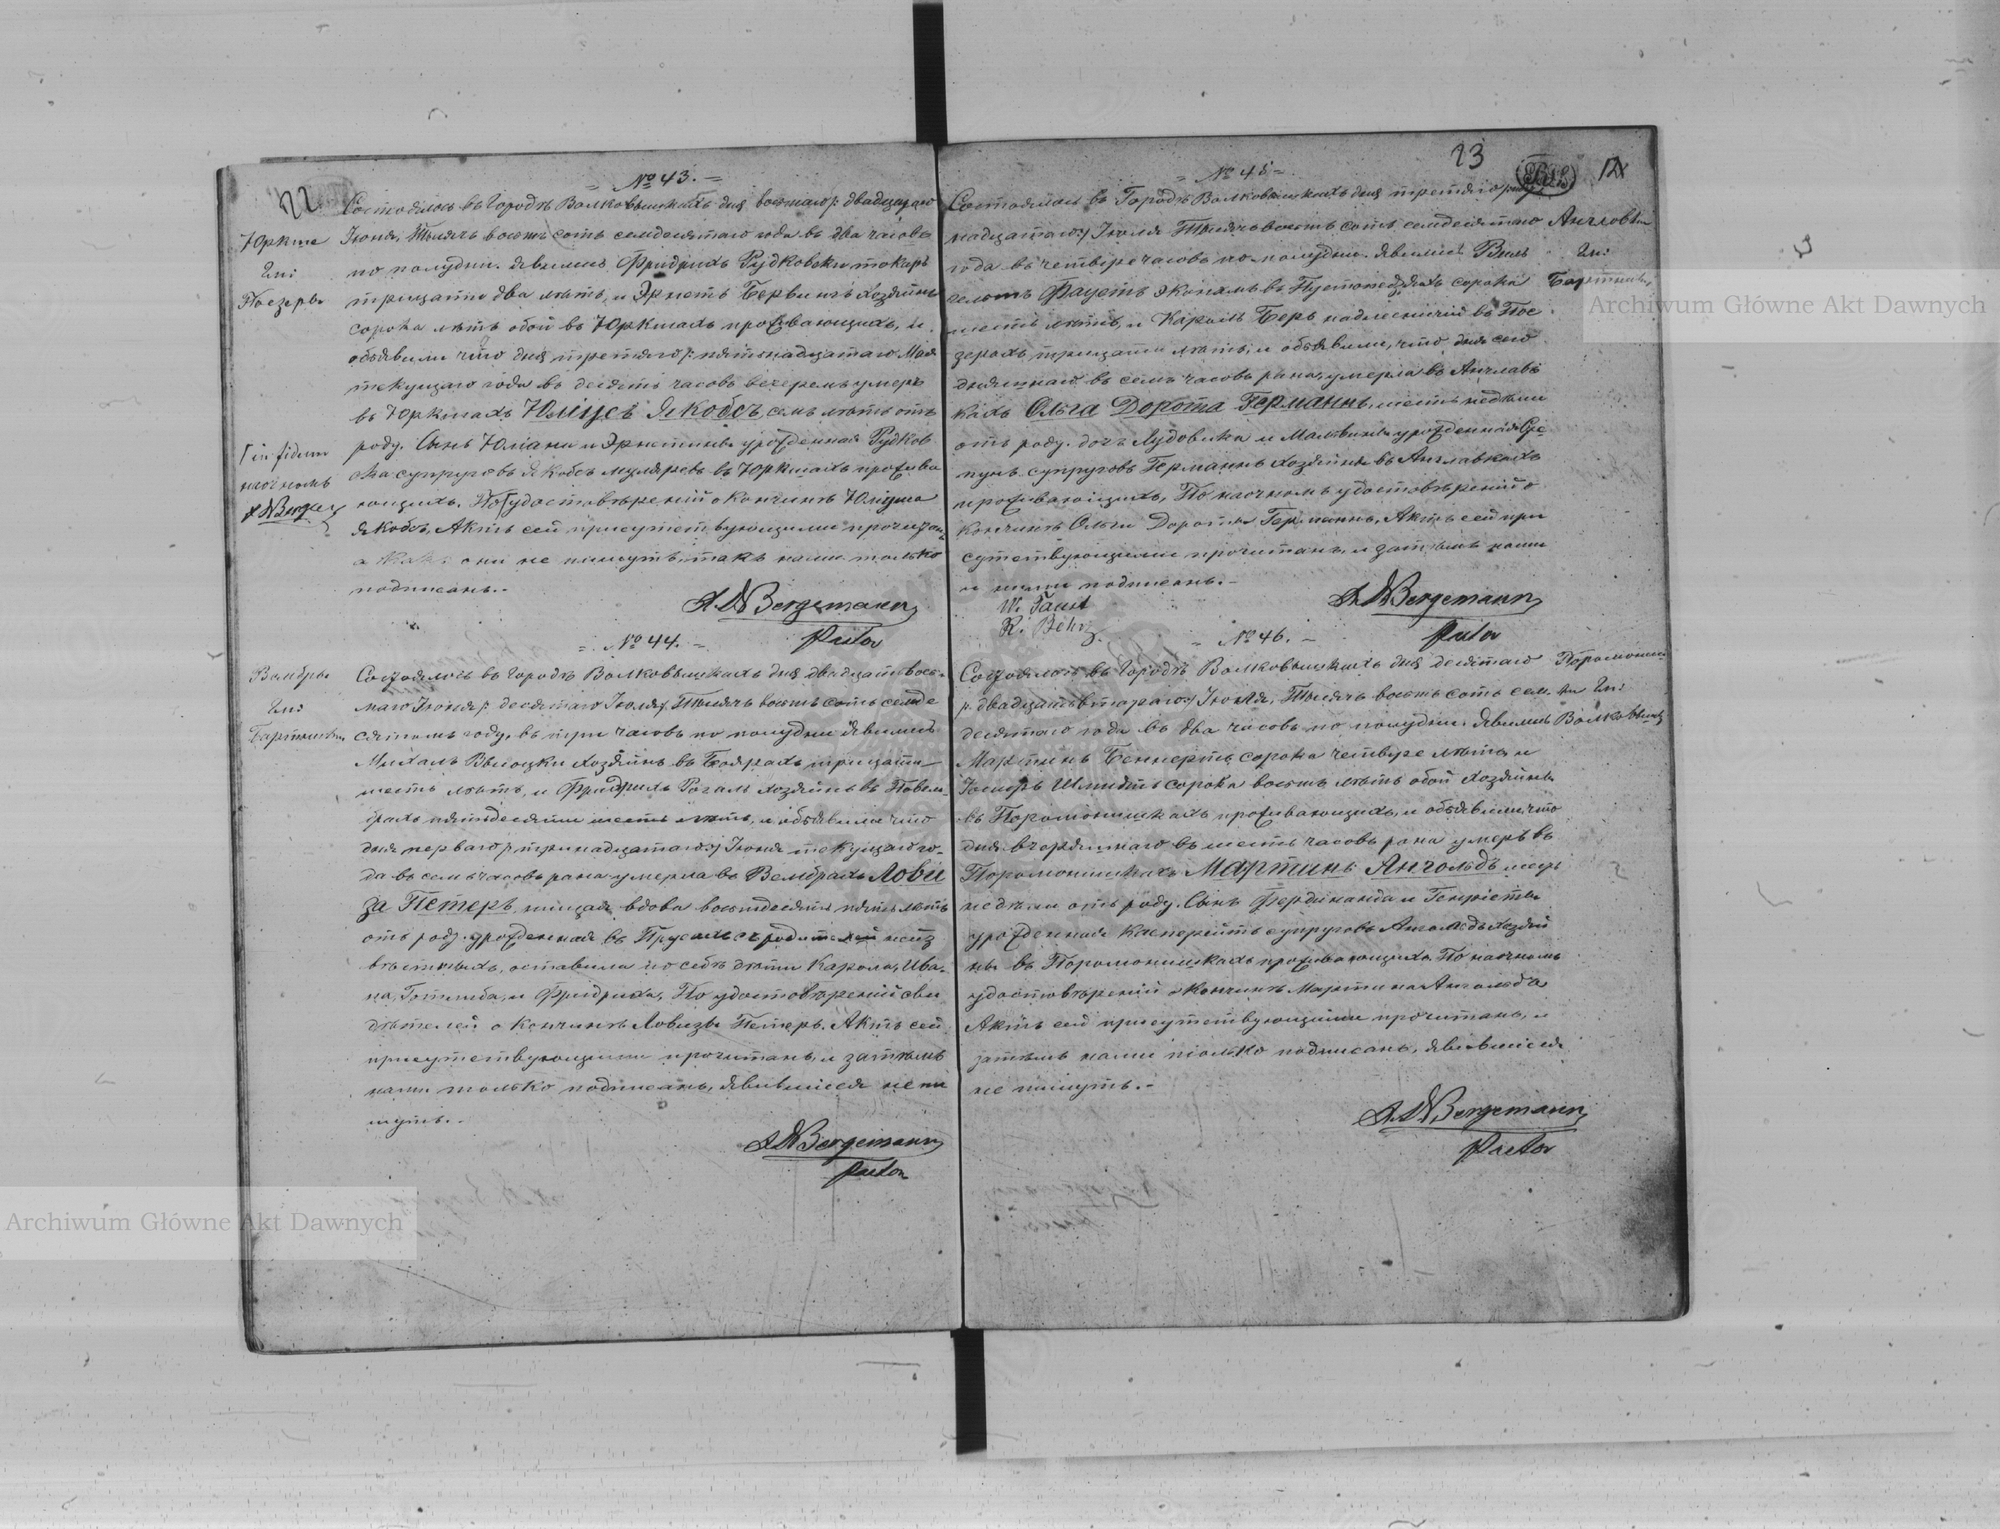 22
№ 43.
Юркше
Гм:
Поезеры
Состоялось въ Городѣ Волковышкахъ дня восьмаго /: двадцатаго
Іюня, Тысяча восемь сотъ семдесятаго года въ два часа
по полудни. Явились Фридрихъ Рудковски токарь
тридцати два лѣтъ, и Эрнстъ Хозяинъ
сорока лѣтъ обой въ Юркшахъ проживающихъ, и
объявили что дня третяго /: пятнадцатаго Мая
текущаго года въ десять часовъ вечеромъ умеръ
въ Юркшахъ Юліусъ Якобсъ, семь лѣтъ отъ
роду. Сынъ Юліана и Эрнстины урожденная Рудков
ска супруговъ Якобсъ въ Юркшахъ прожива
ющихъ. По удостовѣреній о кончинѣ Юліуша
Якобсъ, Актъ сей присутствующими прочитан,
а они не пишутъ, такъ нами только
подписанъ.
in fidem
наочномъ
Bergem
Bergemann
Pastor
№ 44.
Вембры
Гм:
Состоялось въ Городѣ Волковышкахъ дня двадцать вось
маго Іюня /: десятаго Іюля/ Тысяча восемь сотъ семде
сятомъ году, въ три часовъ по полудни Явились
Михалъ Высоцки Хозяинъ въ Боярахъ тридцати
шесть лѣтъ, и Фридрихъ Рогалъ Хозяинъ въ
брахъ пятьдесяти шесть лѣтъ, и объявили что
дня перваго /: тринадцатаго/ Іюня текущаго го
да въ семь часовъ рана умерла въ Вембрахъ Лови
за Петеръ, нищая, вдова восемдесяти пять лѣтъ
отъ роду урожденная въ Прусахъ съ родителей неиз
вѣстныхъ, оставила по себѣ дѣти Карола, Ива
на, Готлиба, и Фридриха, По удостовѣреній сви
дѣтелей о кончинѣ Ловизы Петеръ. Актъ сей
присутствующими прочитанъ, и затѣмъ
нами только подписанъ, явившіеся не пи
шутъ.
Bergemann
Pastor
23
№ 45
Состоялось въ Городѣ Волковышкахъ дня третяго /:
надцатаго/ Іюля Тысяча восемь сотъ семдесятаго
года въ четыре часовъ по полудни. Явились Виль
гельмъ Фаустъ Экономъ въ сорока
шесть лѣтъ, и Каролъ Беръ надлесничій въ Пое
зерахъ, тридцати лѣтъ, и объявили, что дня сего
дняшнаго въ семь часовъ рана, умерла въ Англав
кахъ Ольга Дорота Германнъ, шесть недѣли
отъ роду. дочъ Лудовика и Мальвины урожденная
супруговъ Германнъ Хозяины въ Англавкахъ
проживающихъ, По наочномъ удостовѣреній о
кончинѣ Ольги Дороты Германнъ, Актъ сей при
сутствующими прочитанъ, и затѣмъ нами
и ними подписанъ.
W. Faust
K. Behr
Гм:
Bergemann
Pastor
№ 46.
Состоялось въ Городѣ Волковышкахъ дня десятаго
/: двадцать втораго/ Іюля, Тысяча восемь сотъ сем
десятаго года въ два часовъ по полудни. Явились
Мартинъ Беннертъ сорока четыре лѣтъ, и
Шмидтъ сорока восемь лѣтъ обой Хозяины
въ Поромонишкахъ проживающихъ, и объявили, что
дня вчерашнаго въ шесть часовъ рана умеръ въ
Поромонишкахъ Мартинъ Ангольдъ шесть
недѣли отъ роду. Сынъ Фердинанда и Генріеты
урожденная Касперейтъ супруговъ Ангольдъ Хозяи
ны въ Поромонишкахъ проживающихъ. По наочномъ
удостовѣреній о кончинѣ Мартина Ангольда
Актъ сей присутствующими прочитанъ, и
затѣмъ нами только подписанъ, явившіеся
не пишутъ.
Поромониш
ки Гм:
Волковышк
Bergemann
Pastor
Archiwum Główne Akt Dawnych
Archiwum Główne Akt Dawnych